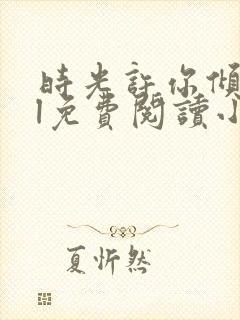 時光許你傾
1免費閱讀小
夏忻然